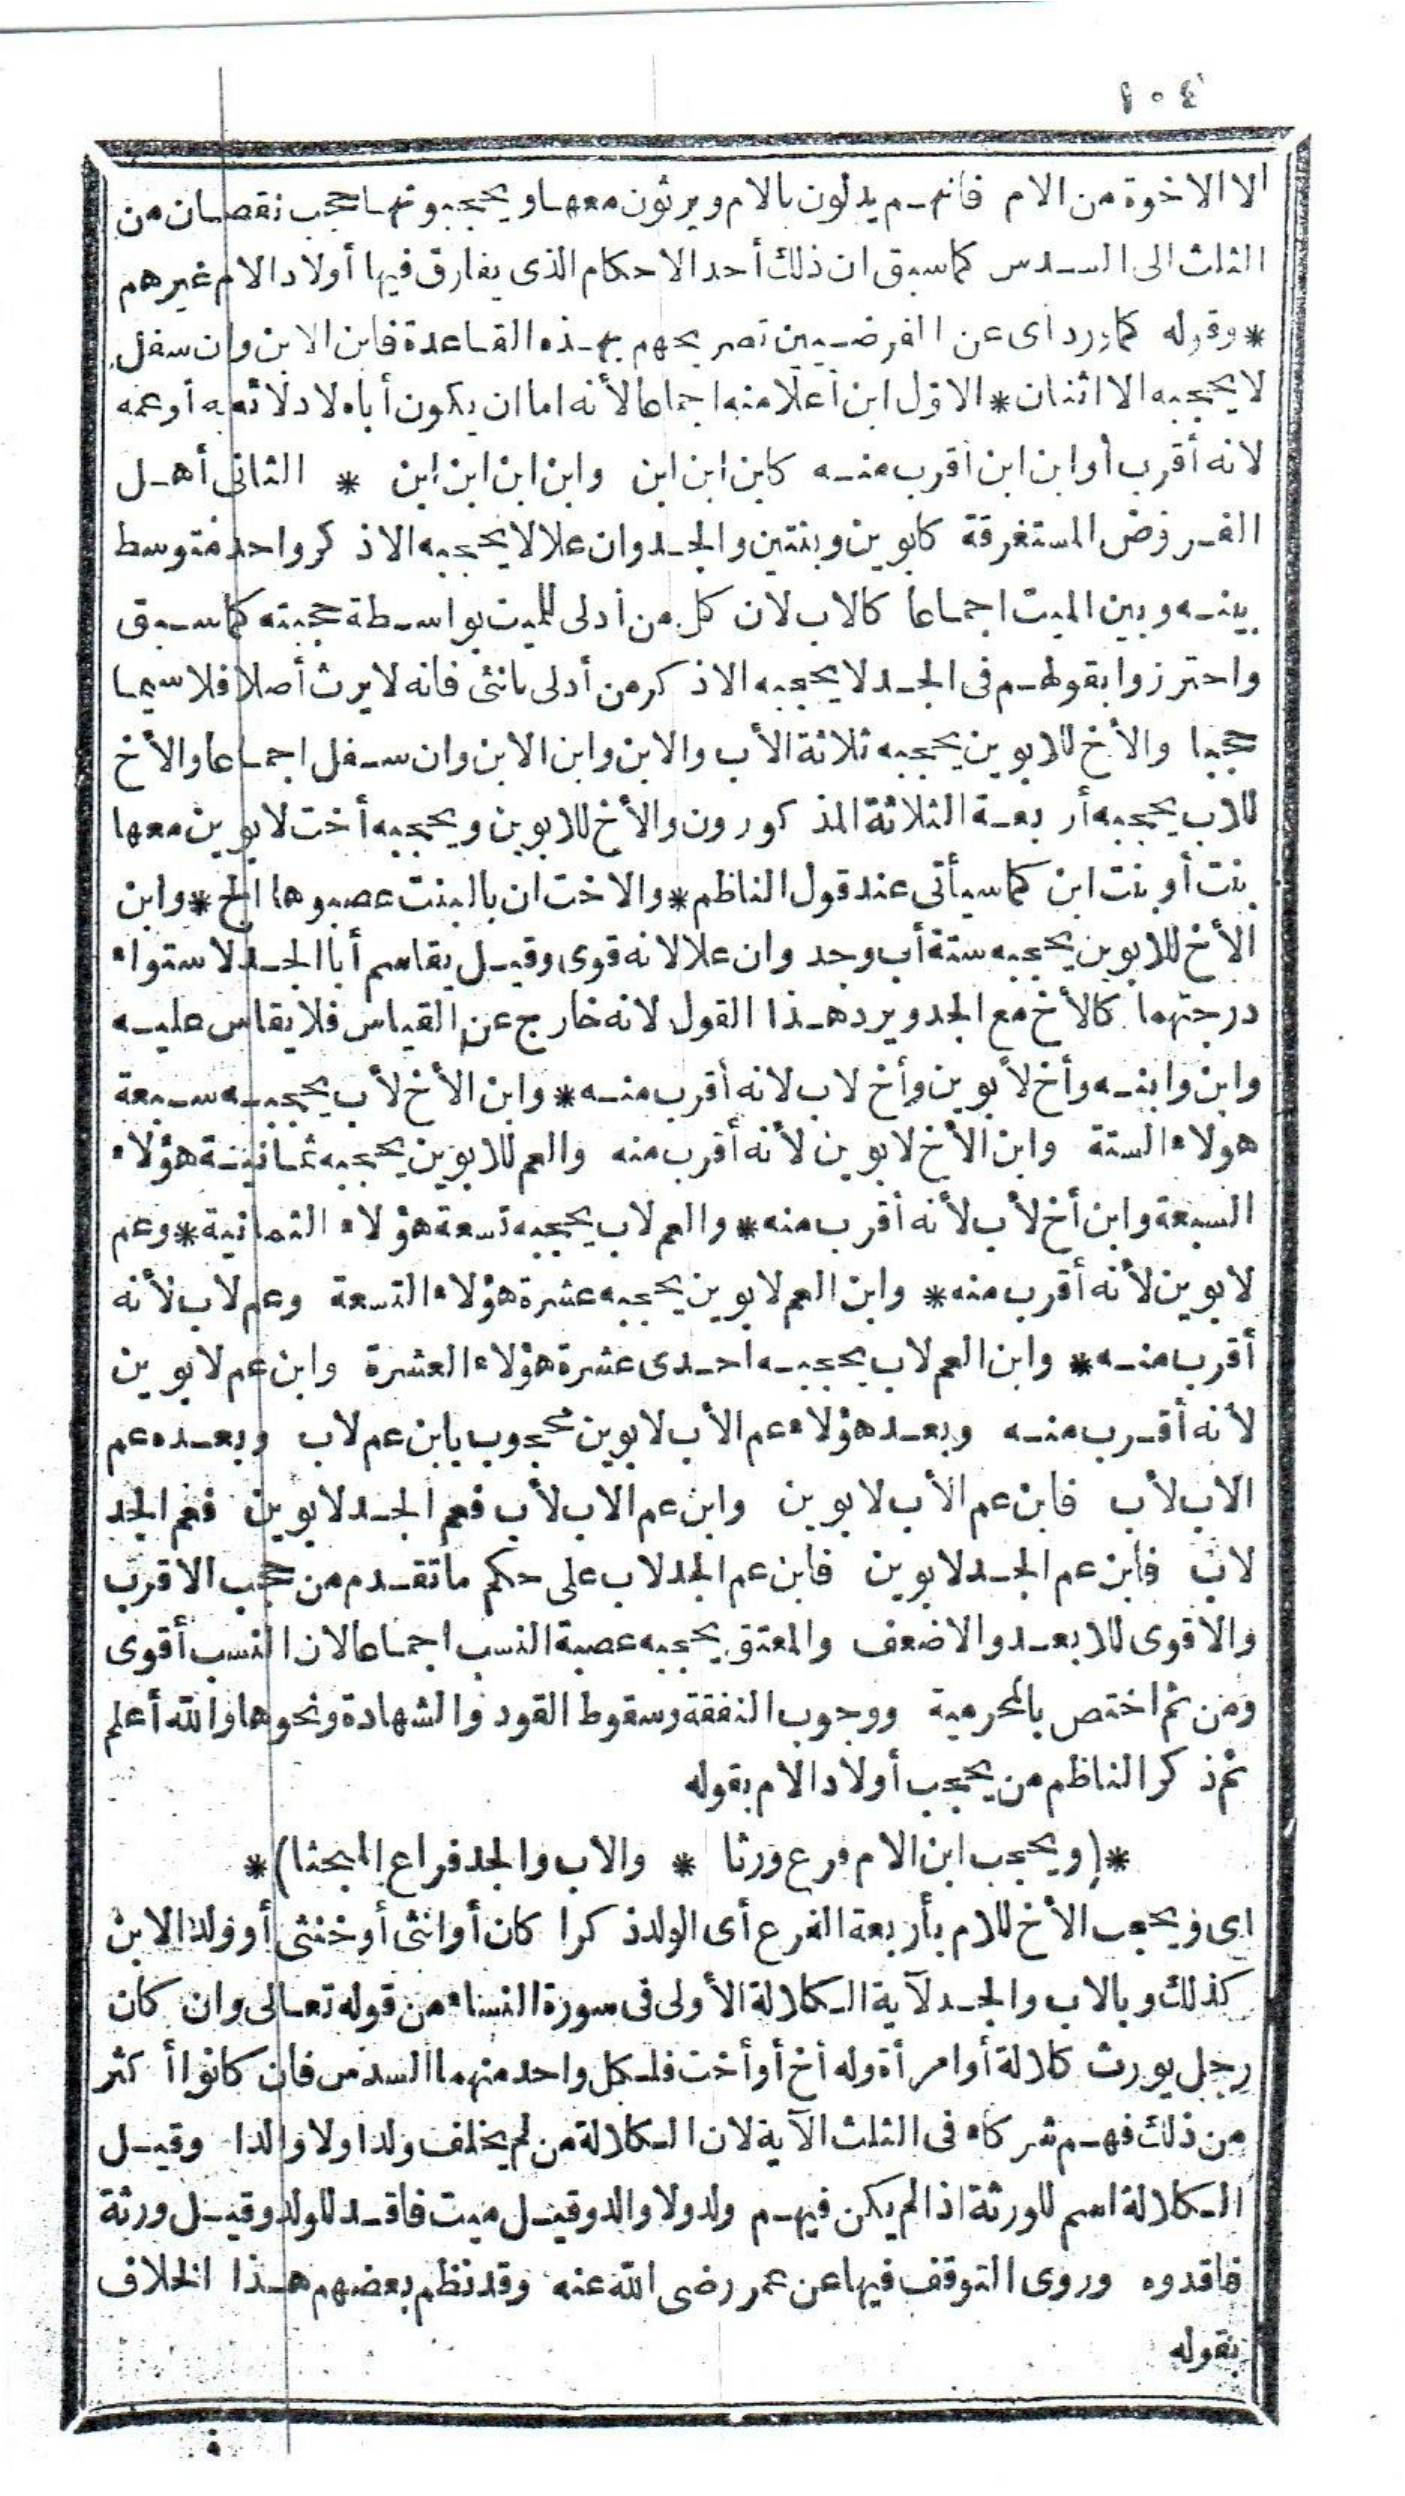 ١٠٤
الا الاخوة من الام فانهم يدلون بالام ويرثون معها ويحجبونها حجب نقصان من
الثلث الى السدس كما سبق ان ذلك أحد الاحكام الذى يفارق فيها أولاد الام غيرهم
* وقوله كما ورد اى عن الفرضيين تصريحهم بهذه القاعدة فابن الابن وان سفل
لا يحجبه الا اثنان * الاول ابن أعلا منه اجماعا لأنه اما ان يكون أباه لادلائه به أو عمه
لانه أقرب أو ابن ابن اقرب منه كابن ابن ابن وابن ابن ابن ابن * الثانى أهل
الفروض المستغرقة كابوين وبنتين والجد وان علا لا يحجبه الا ذكر واحد متوسط
بينه وبين الميت اجماعا كالاب لان كل من أدلى للميت بواسطة حجبته كما سبق
واحترزوا بقولهم فى الجد لا يحجبه الا ذكر من أدلى بانثى فانه لا يرث أصلا فلا سيما
حجبا والأخ للابوين يحجبه ثلاثة الأب والابن وابن الابن وان سفل اجماعا والأخ
للاب يحجبه أربعة الثلاثة المذكورون والأخ للابوين ويحجبه أخت لابوين معها
بنت أو بنت ابن كما سيأتى عند قول الناظم * والاخت ان بالبنت عصبوها الخ * وابن
الأخ للابوين يحجبه ستة أب وجد وان علا لانه قوى وقيل يقاسم أبا الجد لاستواء
درجتهما كالأخ مع الجد ويرد هذا القول لانه خارج عن القياس فلا يقاس عليه
وابن وابنه وأخ لأبوين وأخ لاب لانه أقرب منه * وابن الأخ لأب يحجبه سبعة
هولاء الستة وابن الأخ لابوين لأنه أقرب منه والعم للابوين يحجبه ثمانية هؤلاء
السبعة وابن أخ لأب لأنه أقرب منه * والعم لاب يحجبه تسعة هؤلاء الثمانية * وعم
لابوين لأنه أقرب منه * وابن العم لابوين يحجبه عشرة هؤلاء التسعة وعم لاب لأنه
أقرب منه * وابن العم لاب يحجبه احدى عشرة هؤلاء العشرة وابن عم لابوين
لأنه أقرب منه وبعد هؤلاء عم الأب لابوين محجوب بابن عم لاب وبعده عم
الاب لأب فابن عم الأب لابوين وابن عم الاب لأب فعم الجد لابوين فعم الجد
لاب فابن عم الجد لابوين فابن عم الجد لاب على حكم ما تقدم من حجب الاقرب
والاقوى للابعد والاضعف والمعتق يحجبه عصبة النسب اجماعا لان النسب أقوى
ومن ثم اختص بالمحرمية ووجوب النفقة وسقوط القود والشهادة ونحوها والله أعلم
ثم ذكر الناظم من يحجب أولاد الام بقوله
*(ويحجب ابن الام فرع ورثا * والاب والجد فراع المبحثا)*
اى ويحجب الأخ للام بأربعة الفرع أى الولد ذكرا كان أو انثى أو خنثى أو ولد الابن
كذلك وبالاب والجد لآية الكلالة الأولى فى سورة النساء من قوله تعالى وان كان
رجل يورث كلالة أو امرأة وله أخ أو أخت فلكل واحد منهما السدس فان كانوا أكثر
من ذلك فهم شركاء فى الثلث الآية لان الكلالة من لم يخلف ولدا ولا والدا وقيل
الكلالة اسم للورثة اذا لم يكن فيهم ولد ولا والد وقيل ميت فاقد للولد وقيل ورثة
فاقدوه وروى التوقف فيها عن عمر رضى الله عنه وقد نظم بعضهم هذا الخلاف
بقوله